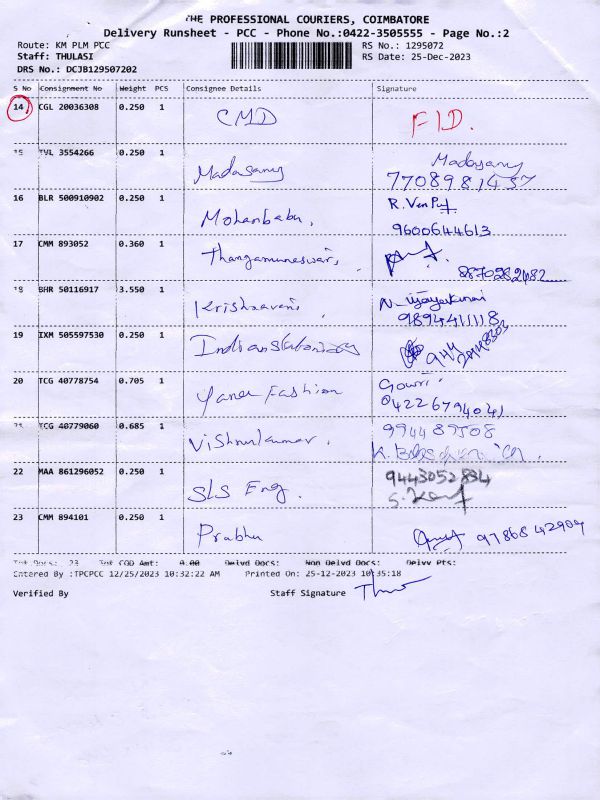 THE PROFESSIONAL COURIERS, COIMBATORE
Delivery Runsheet - PCC - Phone No.:0422-3505555 - Page No.:2
Route: KM PLM PCC RS No.: 1295072
Staff: THULASI RS Date: 25-Dec-2023
DRS No.: DCJB129507202
S No Consignment No Weight PCS Consignee Details Signature
14 CGL 20036308 0.250 1 CMD FID.
15 TVL 3554266 0.250 1 Madasamy Madasamy
7708981457
16 BLR 500910902 0.250 1 Mohanbabu.
9600644613
17 CMM 893052 0.360 1 Thangamuneswari,
8870282482
18 BHR 50116917 3.550 1 Krishnaveni N. Vijayakumari
9894411118
19 IXM 505597530 0.250 1
20 TCG 40778754 0.705 1 Fashion Gowri
04226794041
21 TCG 40779060 0.685 1 Vishnukumar.
22 MAA 861296052 0.250 1 SLS Eng. 9443052884
23 CMM 894101 0.250 1 Prabhu 9786842904
Tot Docs: 23 Tot COD Amt: 0.00 Delvd Docs: Non Delvd Docs: Delvy Pts:
Entered By :TPCPCC 12/25/2023 10:32:22 AM Printed On: 25-12-2023 10:35:18
Verified By Staff Signature